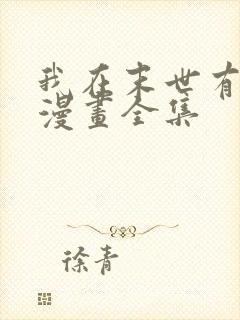 我在末世有
漫畫全集
徐青